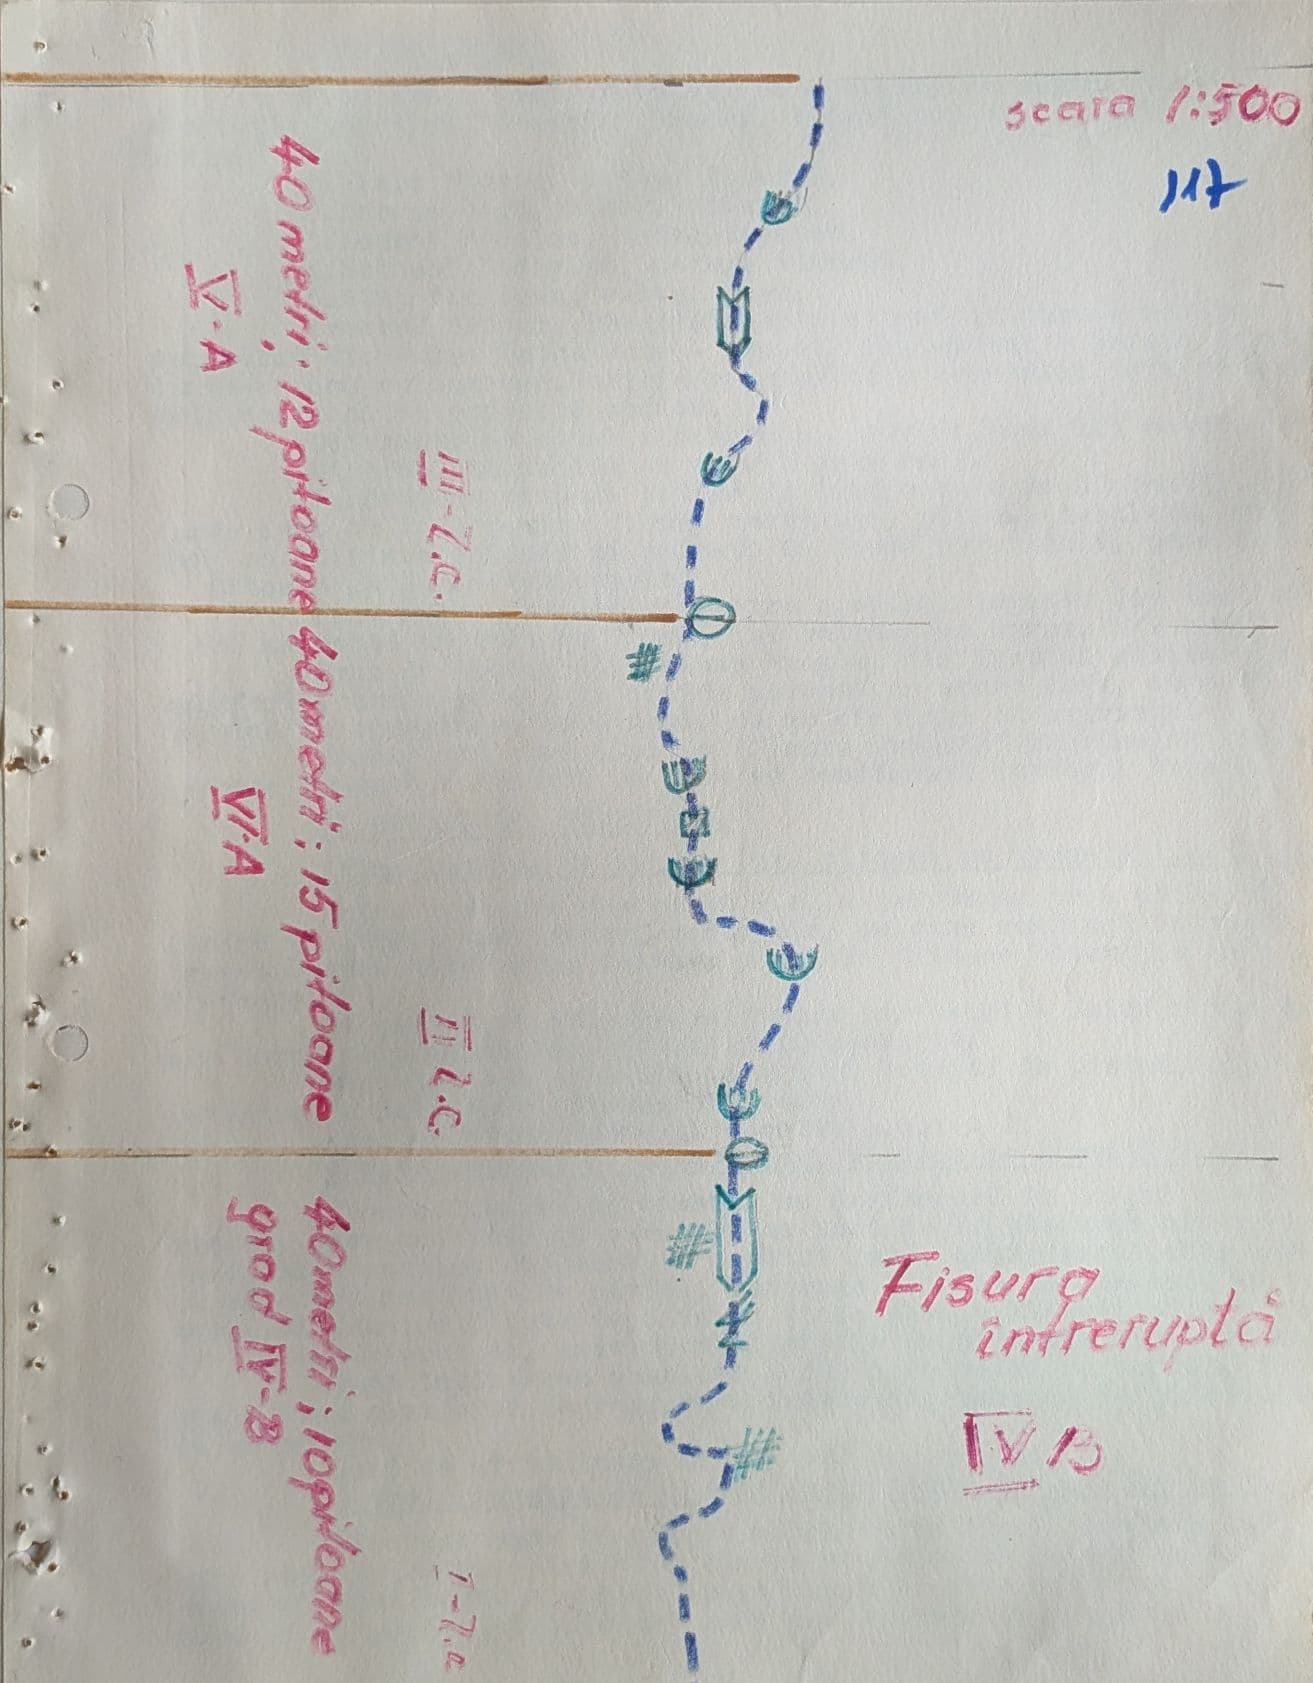 scara 1:500
117
40 metri; 12 pitoane
V-A
III-L.C.
40 metri; 15 pitoane
VI-A
II L.C.
40 metri; 10 pitoane
grad IV-B
Fisura
întreruptă
IV B